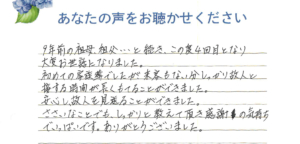 あなたの声をお聴かせください
9年前の祖母、祖父…と続き、この度4回目となり
大変お世話になりました。
初めての家族葬でしたが来客もない分、しっかり故人と
接する時間が長くもてることができました。
安心し故人を見送ることができました。
ささいなことでも、しっかりと教えて頂き感謝の気持ち
でいっぱいです。ありがとうございました。